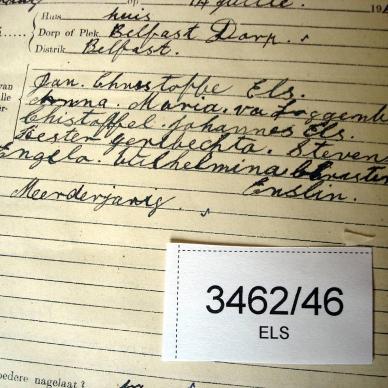 op
19
Huis
huis
Dorp of Plek. Belfast Dorp.
Distrik. Belfast.
van
alle
Jan. Christoffe Els.
Anna. Maria. va
Christoffel. Johannes Els.
Hester gertbechta. Stevens
Engela. Wilhelmina
Enslin.
Meerderjarig.
3462/46
ELS
oedere nagelaat?